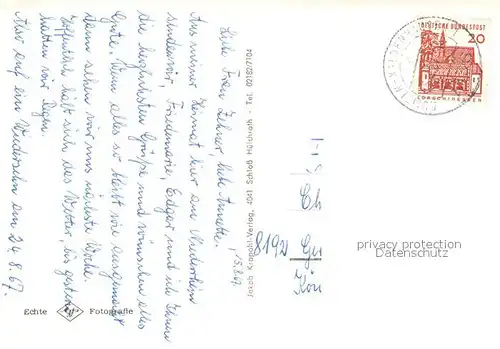 15.8.67
Liebe Frau Zehner, liebe Annette.
Aus meiner Heimat hier am Niederrhein
senden wir, Edgar und ich Ihnen
die herzlichsten Grüße und wünschen alles
Gute. Wenn alles so bleibt wie ausgemacht
dann sehen wir uns nächste Woche.
Hoffentlich hält sich das Wetter, bis gestern
hatten wir Regen.
Also auf ein Wiedersehn am 24.8.67.
Echte Fotografie
Jakob Krapohl-Verlag, 4041 Schloß Hülchrath - Tel. 02182/7104
DEUTSCHE BUNDESPOST
20
LORSCH/HESSEN
8192
privacy protection
Datenschutz